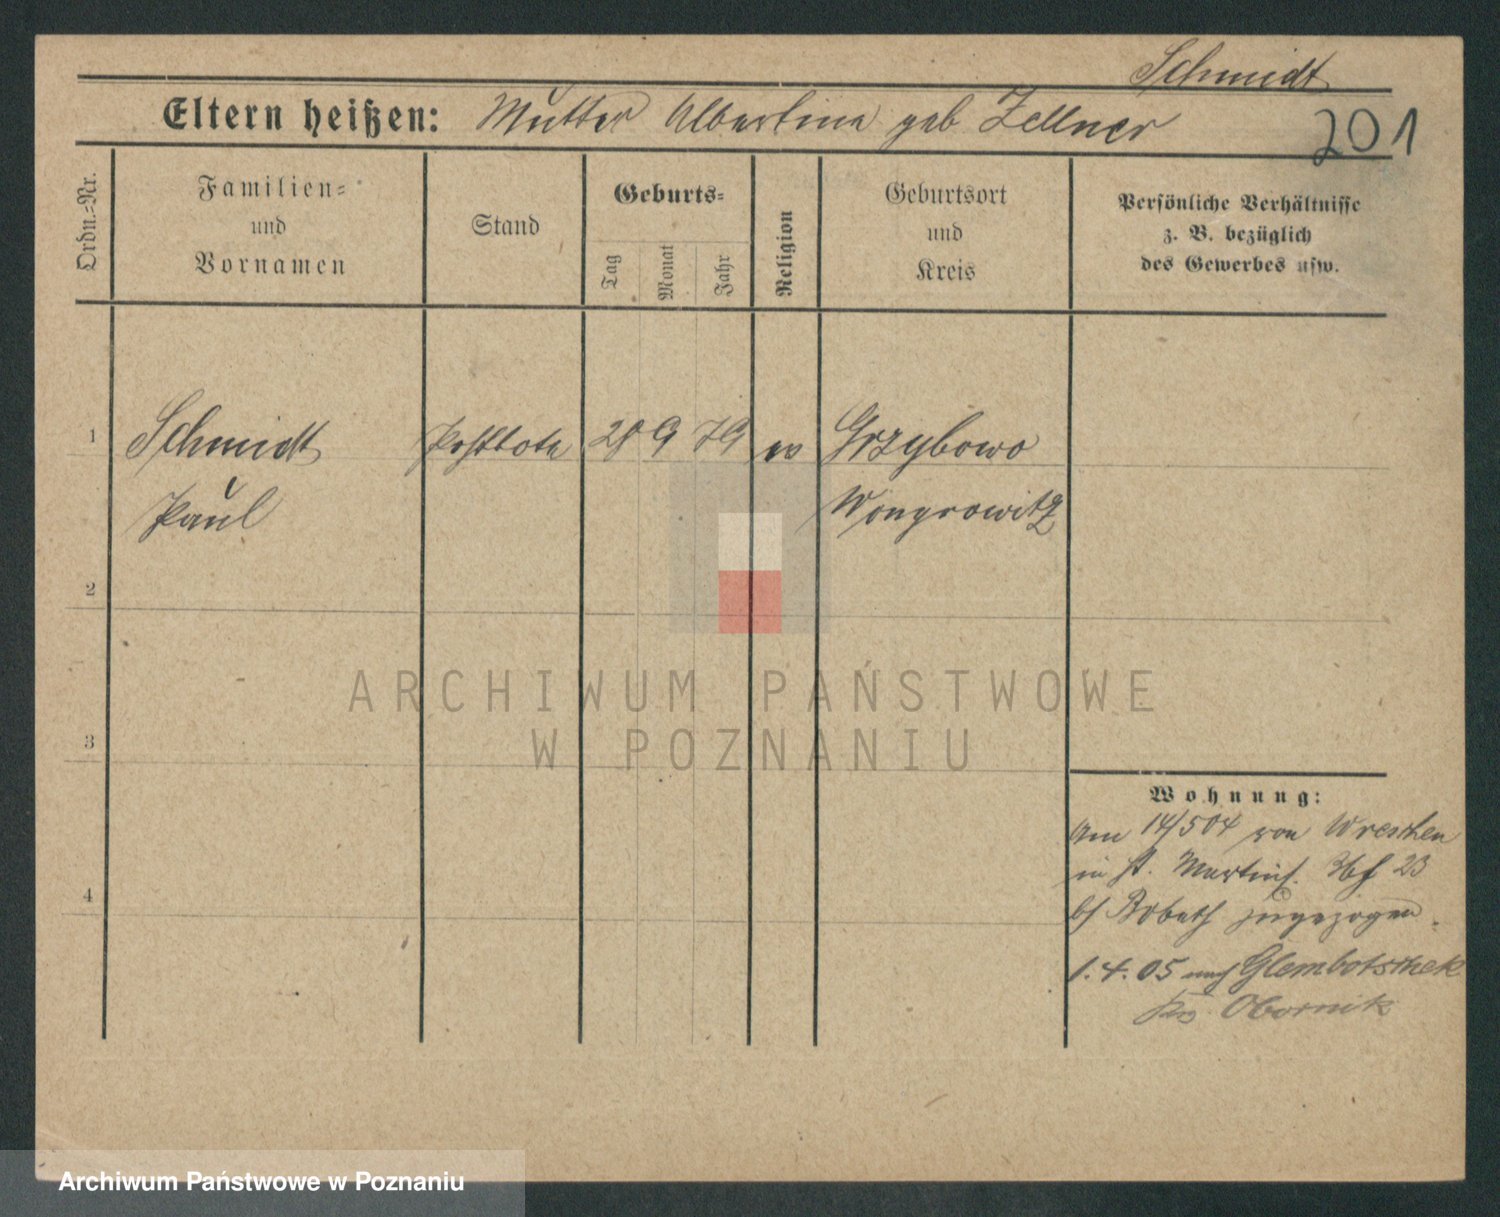 Schmidt
Eltern heißen: Mutter Albertine geb Zellner
201
Ordn.-Nr.
Familien-
und
Vornamen
Stand
Geburts-
Tag
Monat
Jahr
Religion
Geburtsort
und
Kreis
Persönliche Verhältnisse
z. B. bezüglich
des Gewerbes usw.
1 Schmidt Postbote 28 9 79 ev Grzybowo
Paul Wongrowitz
2
ARCHIWUM PAŃSTWOWE
W POZNANIU
3
Wohnung:
Am 14/5 04 von Wreschen
in St. Martinst. 23
4
bei zugezogen.
1.4.05 nach
Krs. Obornik
Archiwum Państwowe w Poznaniu